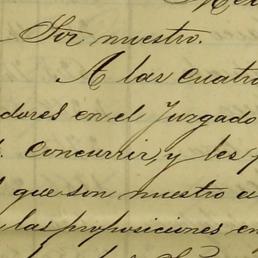 Sor nuestro.
A las cuatro
dores en el Juzgado
concurrir, y les
que son nuestro
las proposiciones en